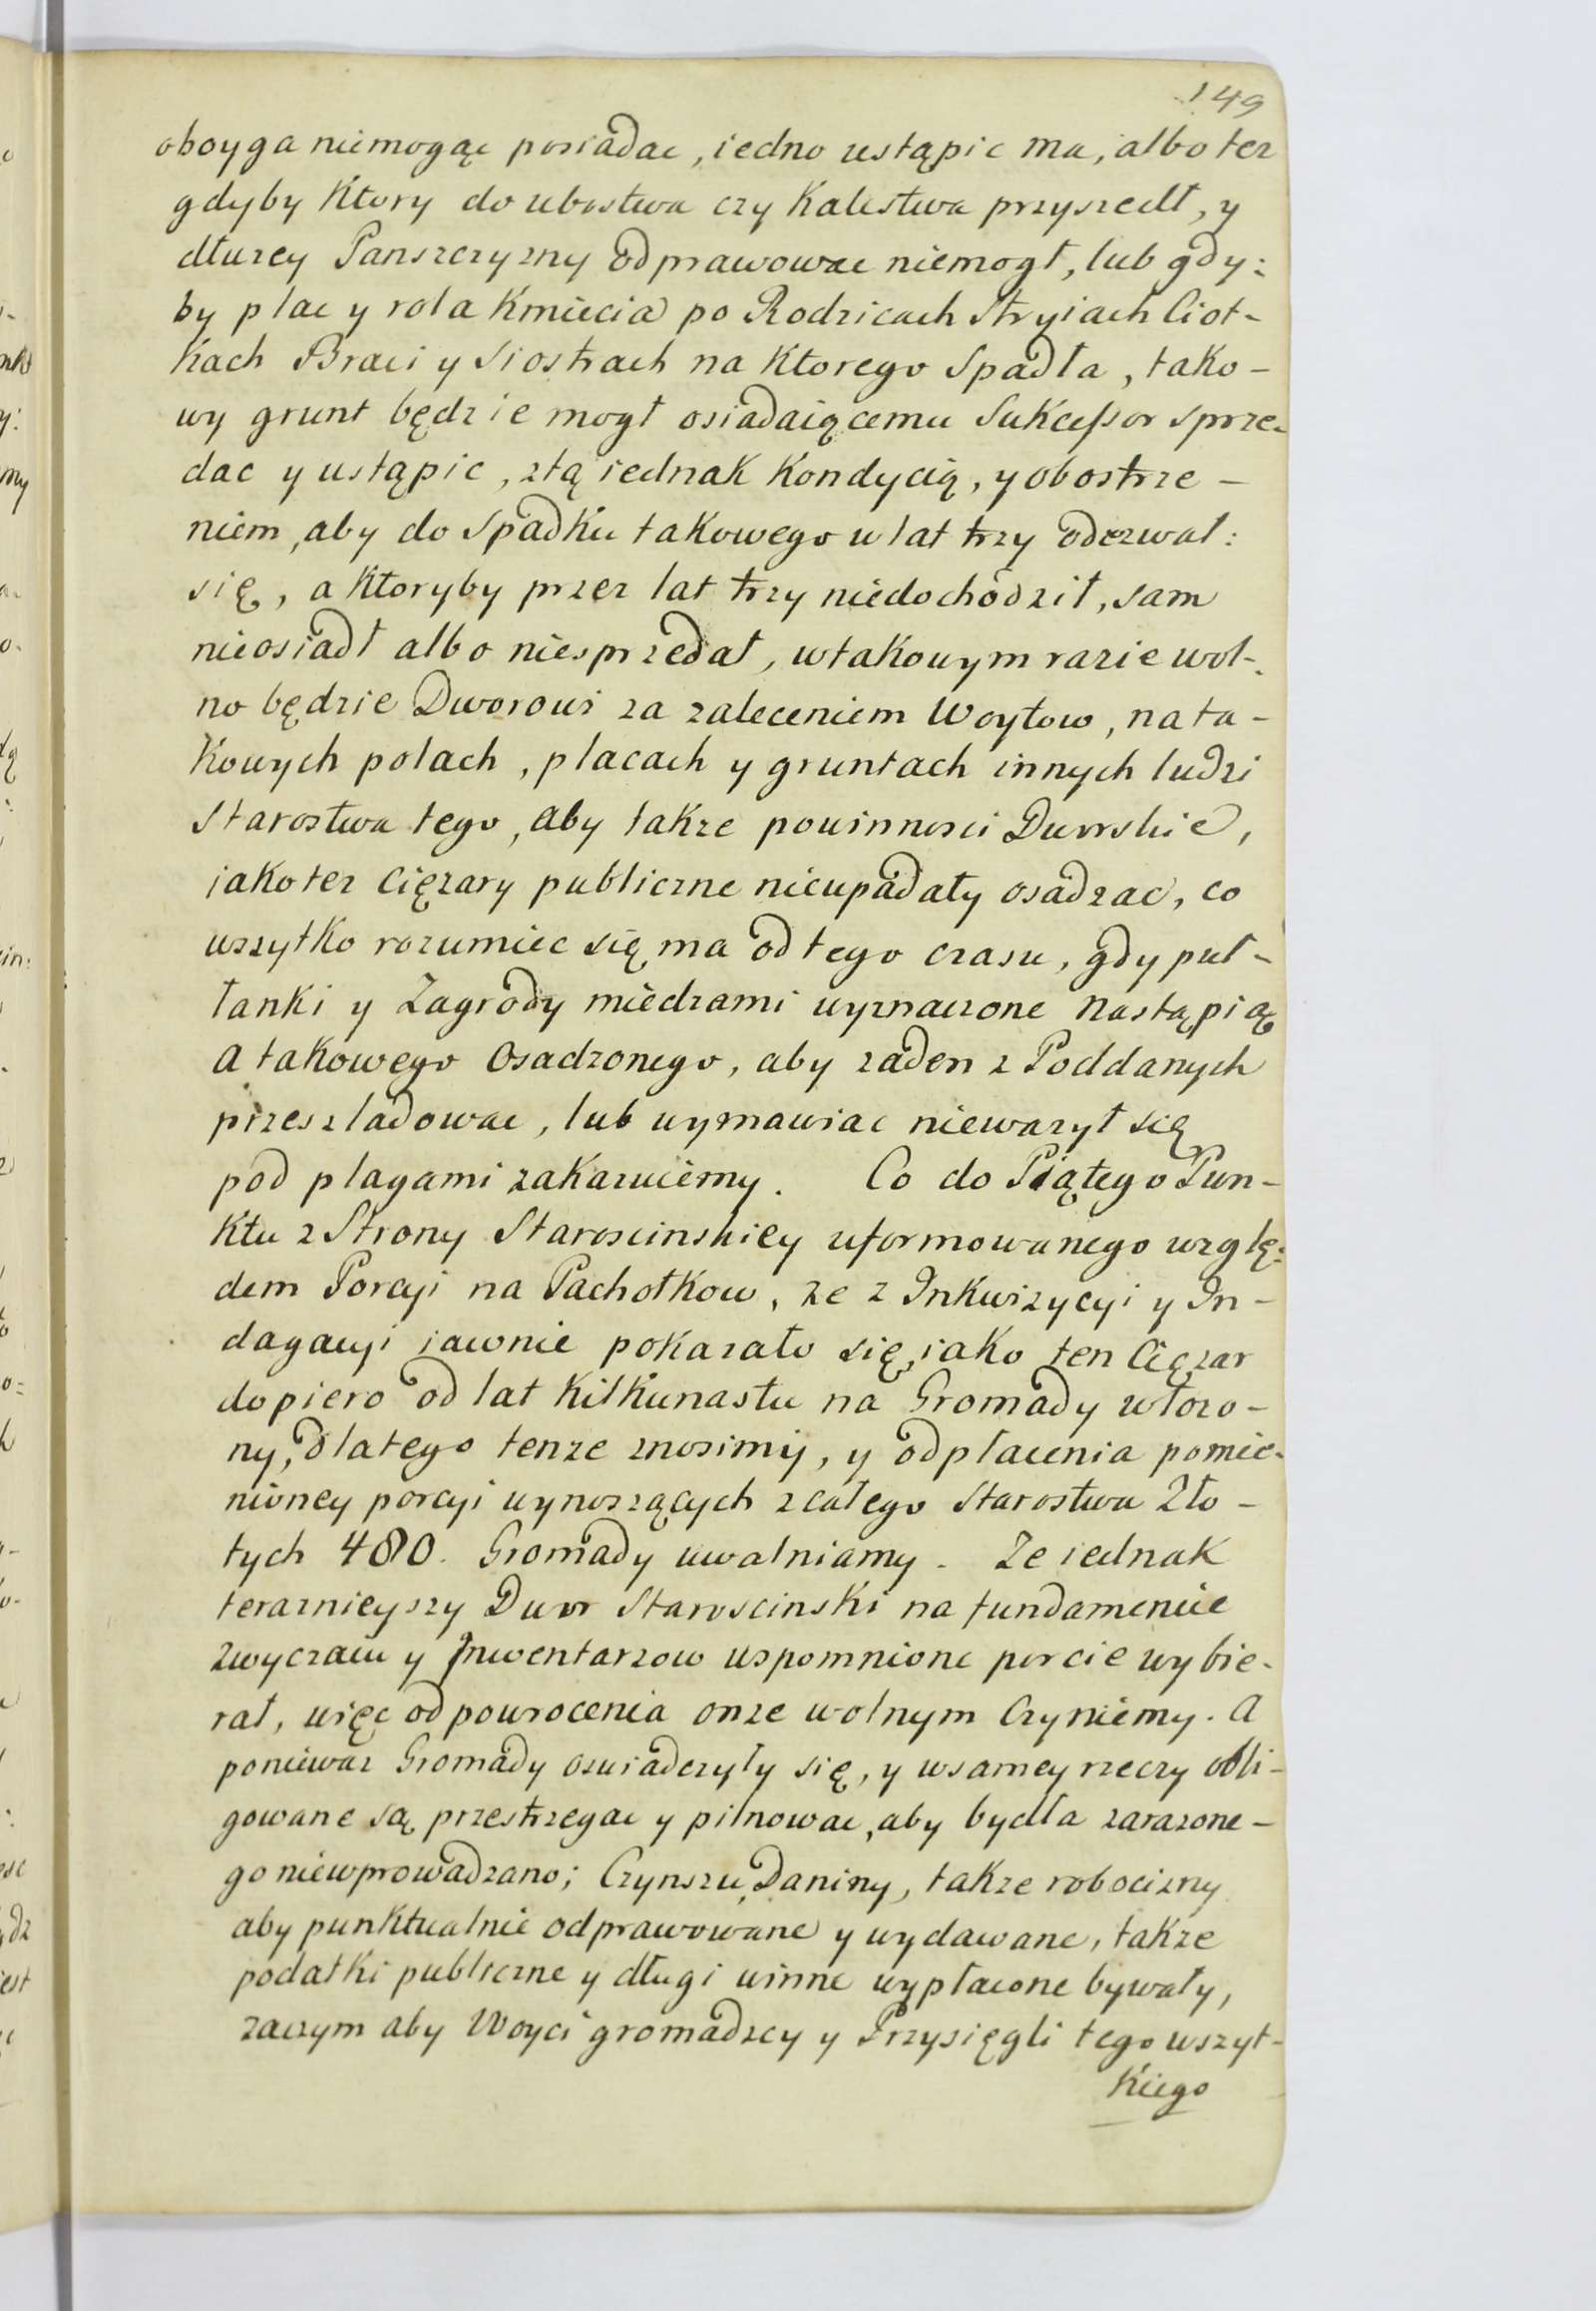 149
oboyga niemogąc posiadac, iedno ustąpic ma, albo tez
gdyby Ktory do ubostwa czy Kalectwa przyszedł, y
dłuzey Panszczyzny odprawowac niemogł, lub gdy:
by plac y rola Kmiecia po Rodzicach Stryiach Ciot-
kach Braci y Siostrach na Ktorego Spadła, tako-
wy grunt będzie mogł osiadaiącemu Sukcessor sprze-
dac y ustąpic, ztą iednak Kondycią, y obostrze-
niem, aby do Spadku takowego w lat trzy odezwał:
się, a Ktoryby przez lat trzy niedochodził, sam
nieosiadł albo niesprzedał, wtakowym razie wol-
no będzie Dworowi za zaleceniem Woytow, na ta-
Kowych polach, placach y gruntach innych ludzi
Starostwa tego, aby takze powinnosci Dworskie,
iako tez Cięzary publiczne nieupadały osadzac, co
wszytko rozumiec się ma od tego czasu, gdy puł-
łanki y Zagrody miedzami wyznaczone nastąpią
A takowego Osadzonego, aby zaden z Poddanych
przeszladowac, lub wymawiac niewazył się
pod plagami zakazuiemy. Co do Piątego Pun-
Ktu z Strony Staroscinskiey uformowanego wzglę:
dem Porcyi na Pachołkow, ze z Inkwizycyi y In-
dagacyi iawnie pokazało się, iako ten Cięzar
dopiero od lat Kilkunastu na Gromady włozo-
ny, dlatego tenze znosimy, y odpłacenia pomie-
nioney porcyi wynoszących z całego Starostwa Zło-
tych 480. Gromady uwalniamy. Ze iednak
teraznieyszy Dwor Staroscinski na fundamencie
zwyczaiu y Inwentarzow wspomnione porcie wybie-
rał, więc od powrocenia onze wolnym Czyniemy. A
poniewaz Gromady oswiadczyły się, y wsamey rzeczy obli-
gowane są przestrzegac y pilnowac, aby bydła zarazone-
go niewprowadzano; Czynszu, Daniny, takze robocizny
aby punktualnie odprawowane y wydawane, takze
podatki publiczne y długi winne wypłacone bywały,
zaczym aby Woyci gromadzcy y Przysięgli tego wszyt-
Kiego